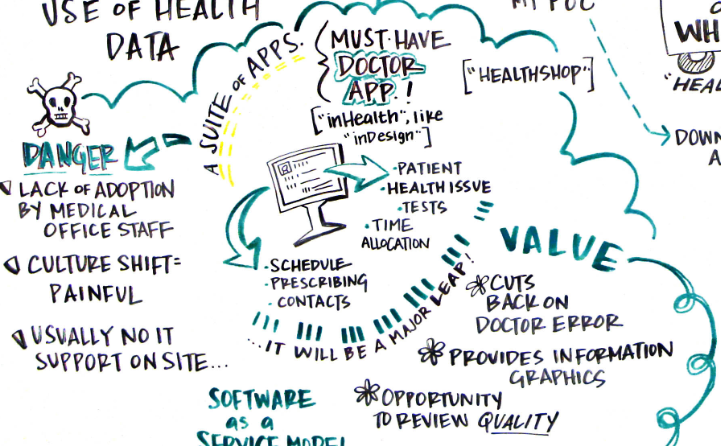 USE OF HEALTH
DATA
A SUITE OF APPS.
MUST-HAVE
DOCTOR
APP.!
["inHealth", like
"inDesign"]
["HEALTHSHOP"]
MY POC
WH
"HEAL
DOWN
A
DANGER
LACK OF ADOPTION
BY MEDICAL
OFFICE STAFF
CULTURE SHIFT=
PAINFUL
USUALLY NO IT
SUPPORT ON SITE...
•PATIENT
•HEALTH ISSUE
•TESTS
•TIME
ALLOCATION
•SCHEDULE
•PRESCRIBING
•CONTACTS
...IT WILL BE A MAJOR LEAP!
VALUE
CUTS
BACK ON
DOCTOR ERROR
PROVIDES INFORMATION
GRAPHICS
OPPORTUNITY
TO REVIEW QUALITY
SOFTWARE
as a
SERVICE MODEL